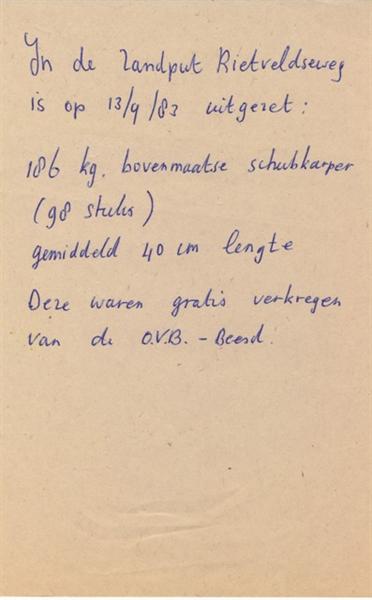 In de zandput Rietveldseweg
is op 13/9/83 uitgezet:
186 kg. bovenmaatse schubkarper
(98 stuks)
gemiddeld 40 cm lengte
Deze waren gratis verkregen
van de O.V.B. - Beesd.